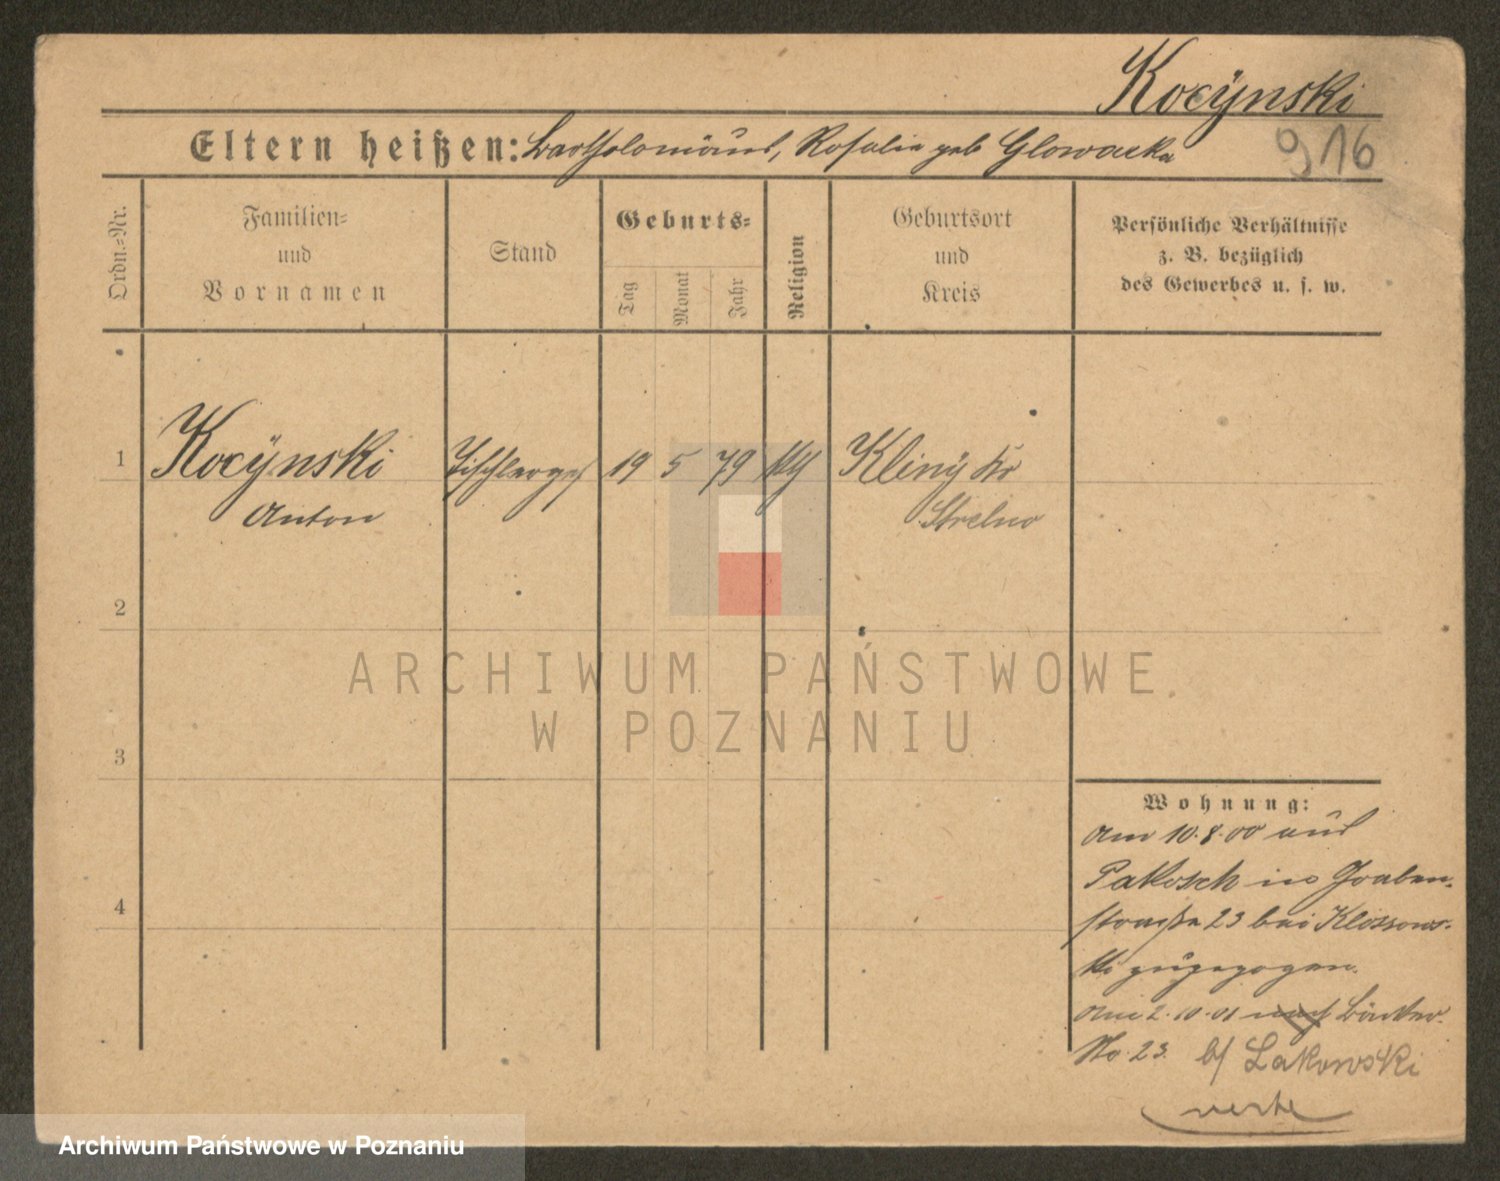 Kocÿnski
916
Eltern heißen: Bartholomäus, Rosalie geb Glowacka
Ordn.-Nr.
Familien- und Vornamen
Stand
Geburts-
Tag
Monat
Jahr
Religion
Geburtsort und Kreis
Persönliche Verhältnisse
z. B. bezüglich
des Gewerbes u. s. w.
1 Kocÿnski Tischlerges 19 5 79 kth Klinÿ Kr
Anton Strelno
2
3
4
ARCHIWUM PAŃSTWOWE
W POZNANIU
Wohnung:
Am 10.8.00 aus
Pakosch in Graben-
straße 23 bei Klossows-
ki zugezogen.
Am 2.10.01 nach
No 23. b/ Lakowski
verte
Archiwum Państwowe w Poznaniu